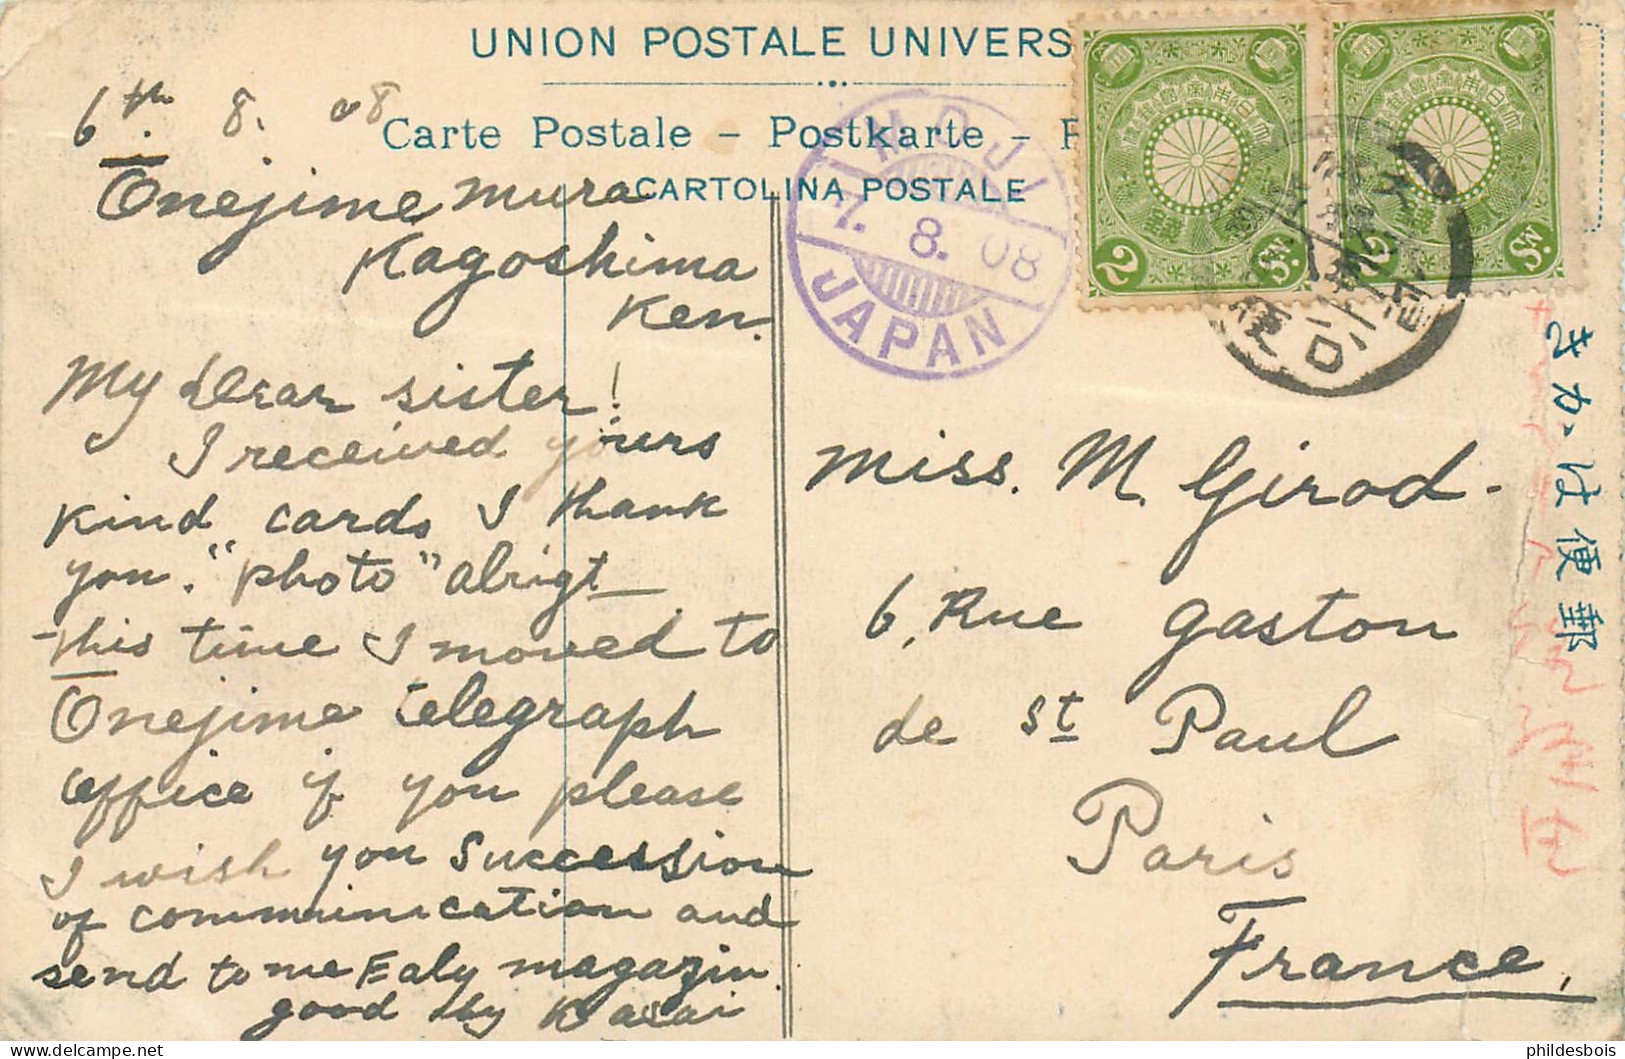 UNION POSTALE UNIVERS
6th. 8. 08
Carte Postale – Postkarte – P
CARTOLINA POSTALE
MOJI
7. 8. 08
JAPAN
2
Sn.
2
Sn.
きかは便郵
Onejime mura
Kagoshima
Ken.
My dear sister!
I received yours
kind cards I thank
you. "photo" alrigt
this time I moved to
Onejime telegraph
office if you please
I wish you succession
of communication and
send to me Ealy magazin.
good by Kasai
Miss. M. Girod.
6, Rue Gaston
de St Paul
Paris
France,
phildesbois